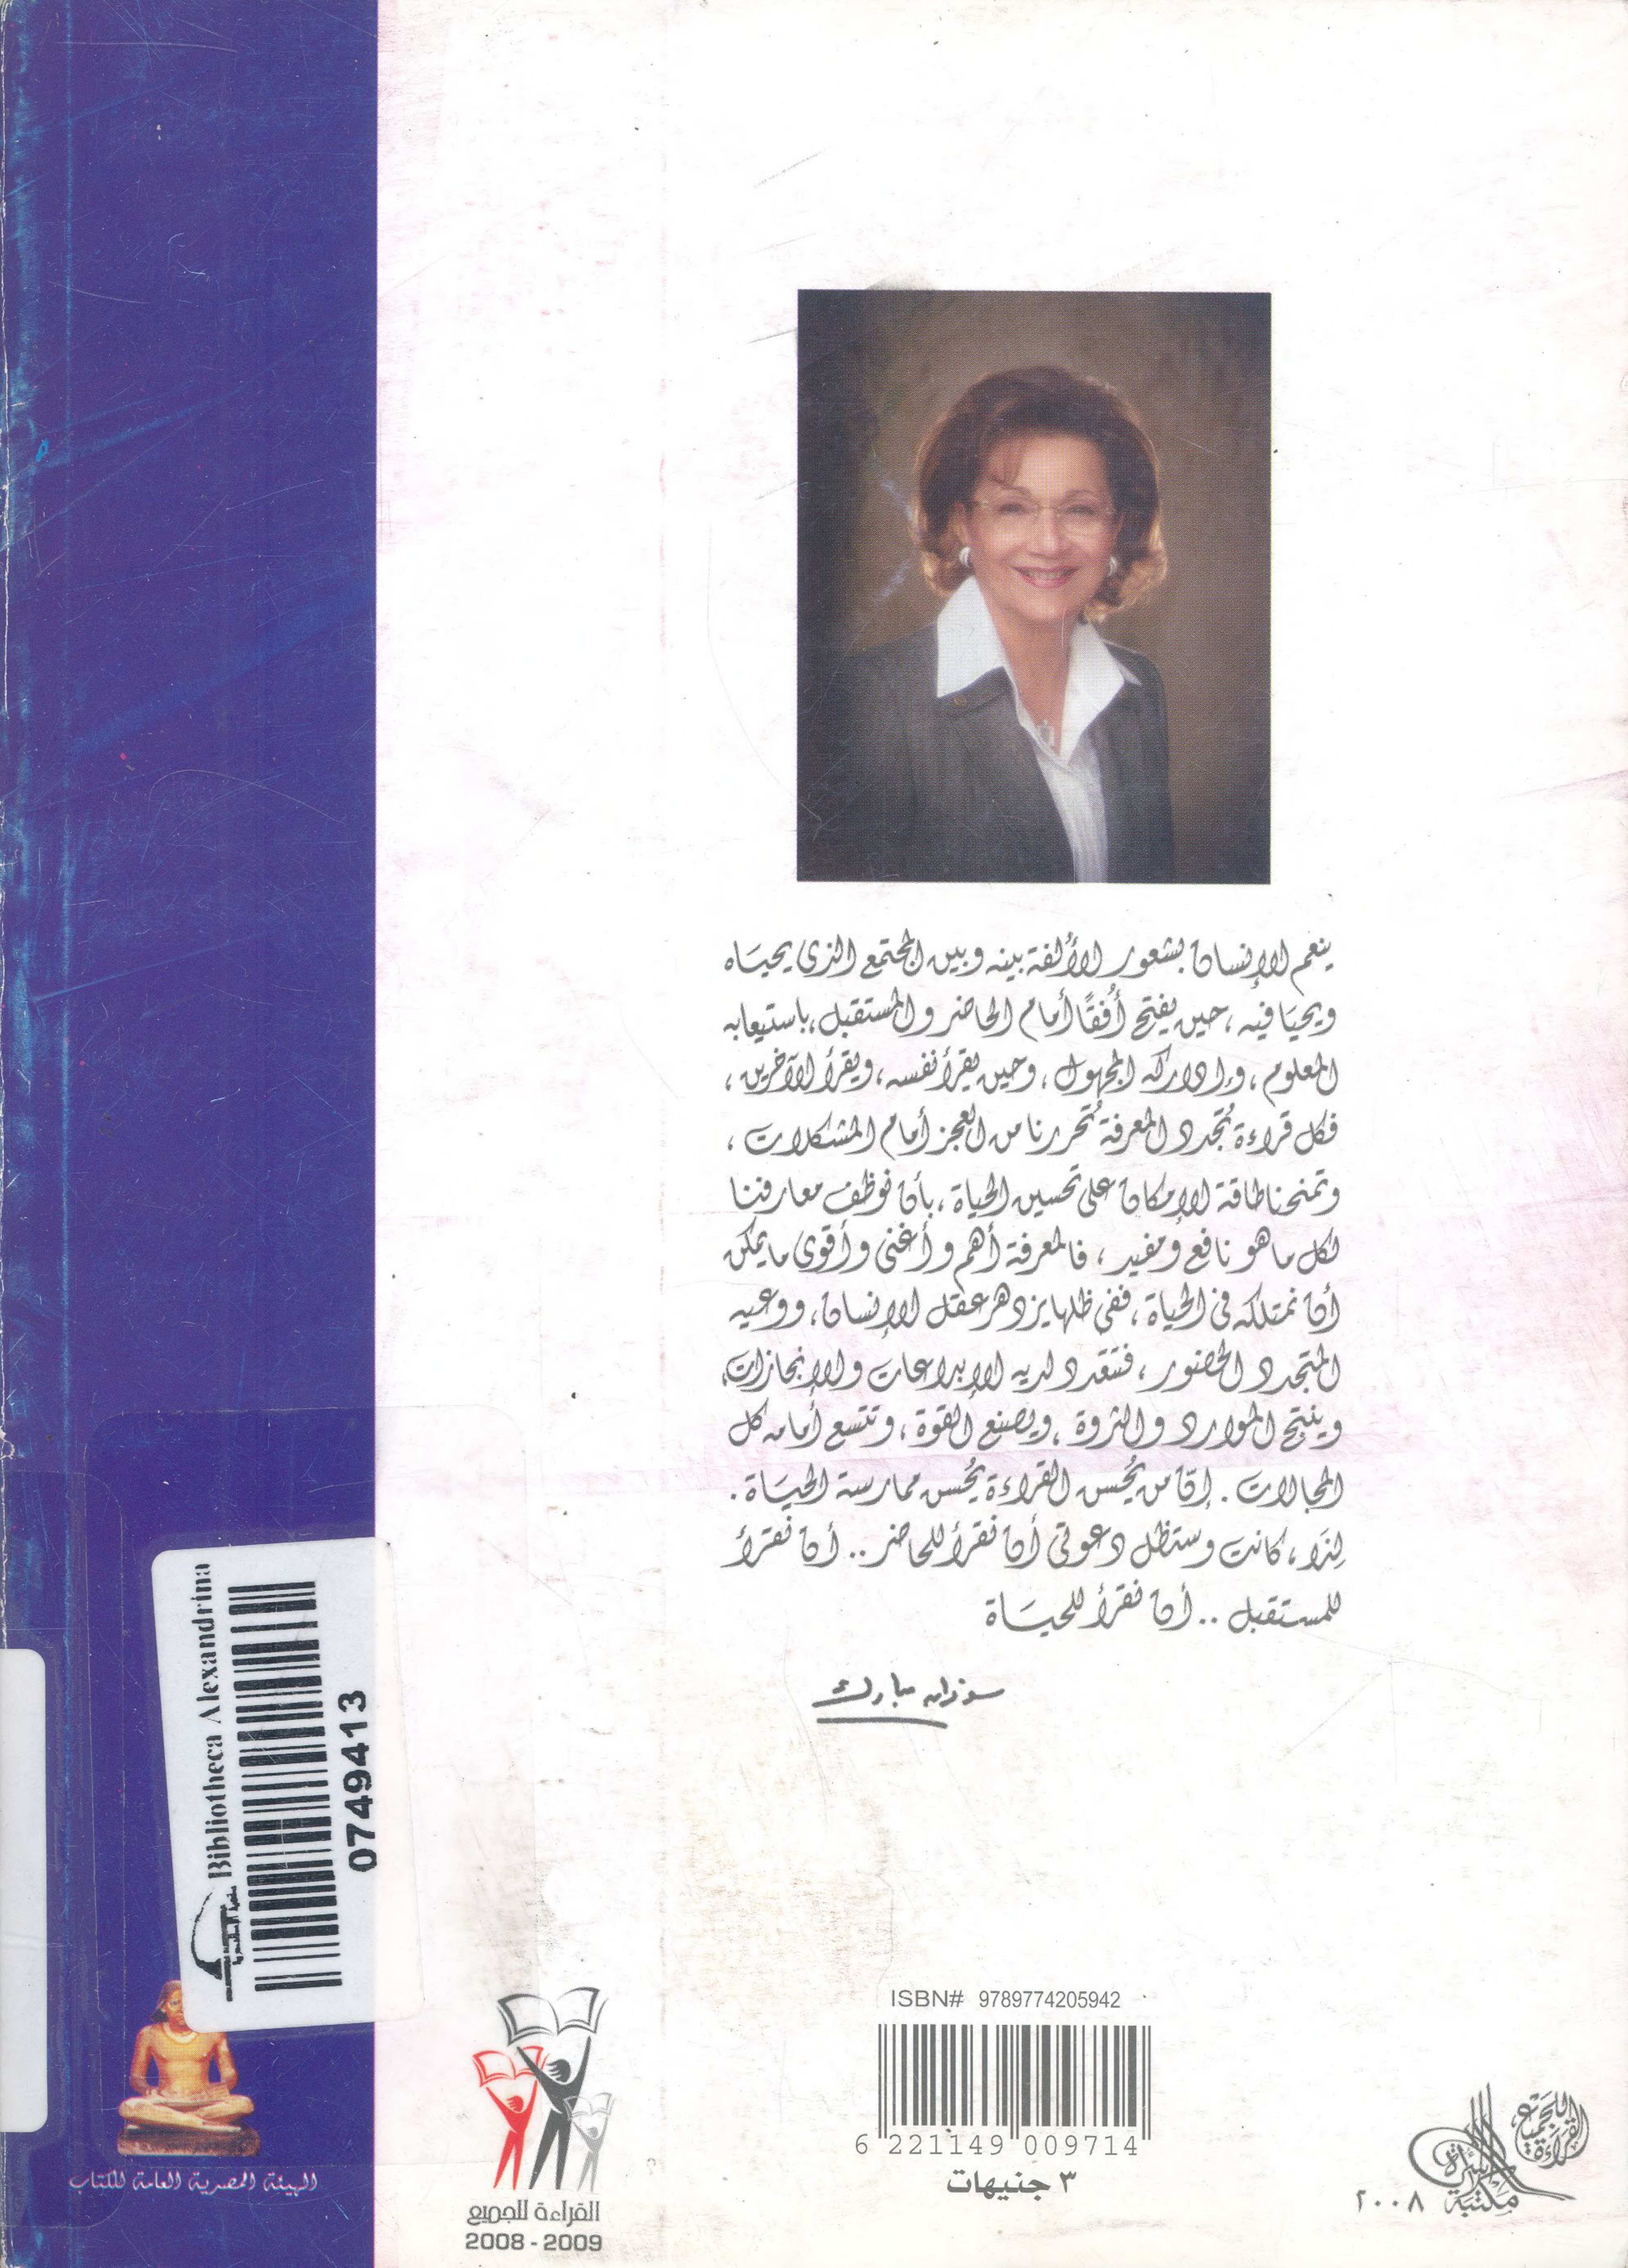 ينعم الإنسان بشعور الألفة بينه وبين المجتمع الذى يحياه
ويحيا فيه، حين يفتح أُفقًا أمام الحاضر والمستقبل، باستيعابه
المعلوم، وإدراكه المجهول، وحين يقرأ نفسه، ويقرأ الآخرين،
فكل قراءة تُجدد المعرفة تُحررنا من العجز أمام المشكلات،
وتمنحنا طاقة الإمكان على تحسين الحياة، بأن نوظف معارفنا
لكل ما هو نافع ومفيد، فالمعرفة أهم وأغنى وأقوى ما يمكن
أن نمتلكه فى الحياة، ففى ظلها يزدهر عقل الإنسان، ووعيه
المتجدد الحضور، فتتعدد لديه الإبداعات والإنجازات،
وينتج الموارد والثروة، ويصنع القوة، وتتسع أمامه كل
المجالات. إنّ من يُحسن القراءة يُحسن ممارسة الحياة.
لِذَا، كانت وستظل دعوتى أن نقرأ للحاضر.. أن نقرأ
للمستقبل.. أن نقرأ للحياة
سوزان مبارك
Bibliotheca Alexandrina
مكتبة الإسكندرية
0749413
الهيئة المصرية العامة للكتاب
القراءة للجميع
2008 - 2009
ISBN# 9789774205942
6 221149 009714
٣ جنيهات
القراءة للجميع
مكتبة الأسرة
٢٠٠٨